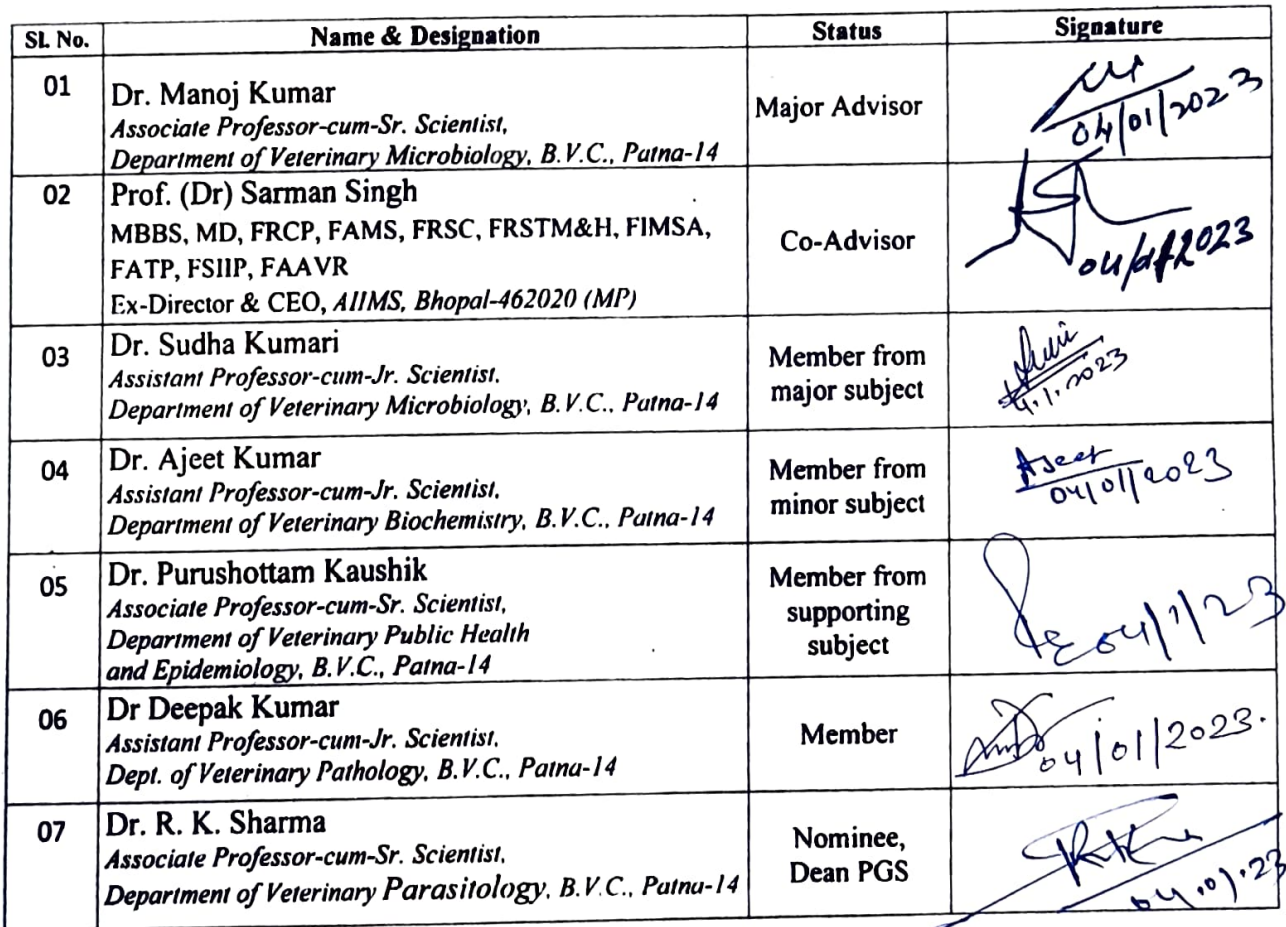 Sl. No. Name & Designation Status Signature
01 Dr. Manoj Kumar
Associate Professor-cum-Sr. Scientist,
Department of Veterinary Microbiology, B.V.C., Patna-14
Major Advisor
04/01/2023
02 Prof. (Dr) Sarman Singh
MBBS, MD, FRCP, FAMS, FRSC, FRSTM&H, FIMSA,
FATP, FSIIP, FAAVR
Ex-Director & CEO, AIIMS, Bhopal-462020 (MP)
Co-Advisor
03 Dr. Sudha Kumari
Assistant Professor-cum-Jr. Scientist.
Department of Veterinary Microbiology, B.V.C., Patna-14
Member from
major subject
4.1.2023
04 Dr. Ajeet Kumar
Assistant Professor-cum-Jr. Scientist.
Department of Veterinary Biochemistry, B.V.C., Patna-14
Member from
minor subject
Ajeet
04/01/2023
05 Dr. Purushottam Kaushik
Associate Professor-cum-Sr. Scientist,
Department of Veterinary Public Health
and Epidemiology, B.V.C., Patna-14
Member from
supporting
subject
04/1/23
06 Dr Deepak Kumar
Assistant Professor-cum-Jr. Scientist.
Dept. of Veterinary Pathology, B.V.C., Patna-14
Member
04/01/2023.
07 Dr. R. K. Sharma
Associate Professor-cum-Sr. Scientist.
Department of Veterinary Parasitology, B.V.C., Patna-14
Nominee,
Dean PGS
04.01.23